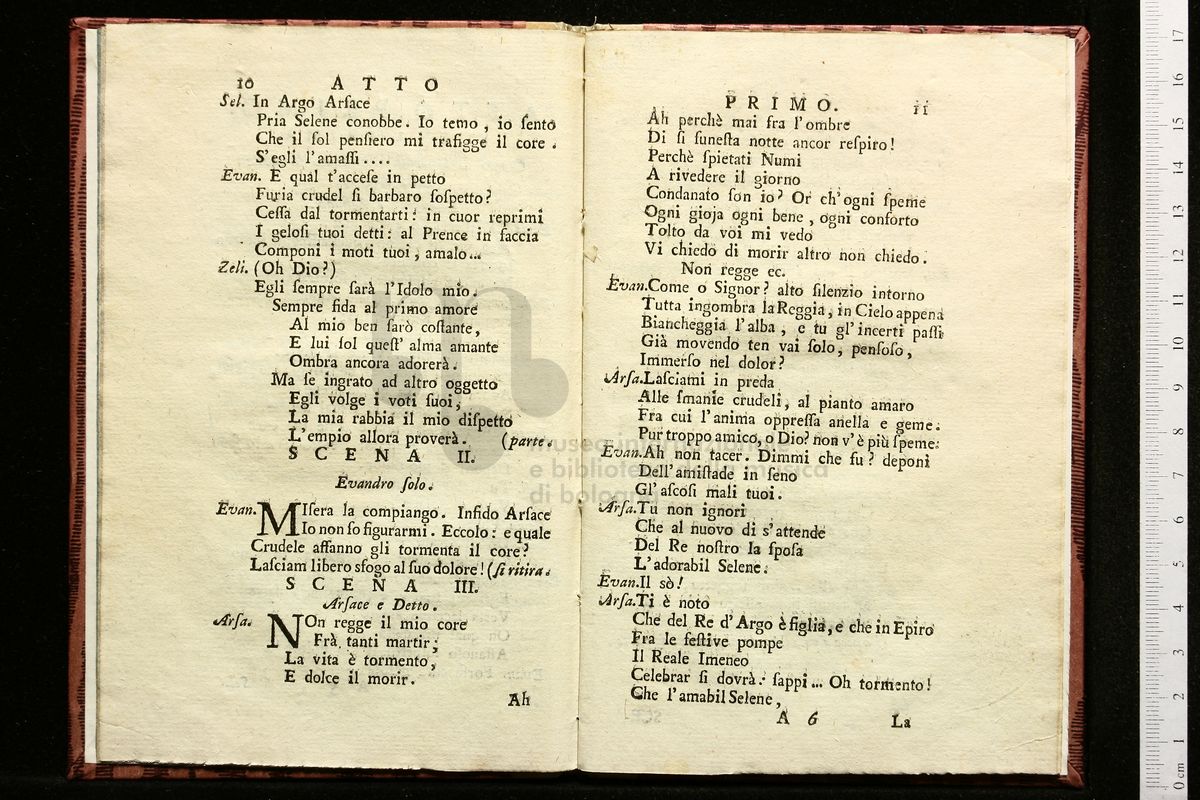 10 ATTO
Sel. In Argo Arſace
Pria Selene conobbe. Io temo, io ſento
Che il ſol penſiero mi trafigge il core.
S'egli l'amaſſi....
Evan. E qual t'acceſe in petto
Furia crudel ſi barbaro ſoſpetto?
Ceſſa dal tormentarti: in cuor reprimi
I geloſi tuoi detti: al Prence in faccia
Componi i moti tuoi, amalo...
Zeli. (Oh Dio?)
Egli ſempre ſarà l'Idolo mio.
Sempre fida al primo amore
Al mio ben ſarò coſtante,
E lui ſol queſt' alma amante
Ombra ancora adorerà.
Ma ſe ingrato ad altro oggetto
Egli volge i voti ſuoi,
La mia rabbia il mio diſpetto
L'empio allora proverà. (parte.
SCENA II.
Evandro ſolo.
Evan. MIſera la compiango. Infido Arſace
Io non ſo figurarmi. Eccolo: e quale
Crudele affanno gli tormenta il core?
Laſciam libero sfogo al ſuo dolore! (ſi ritira.
SCENA III.
Arſace e Detto.
Arſa. NOn regge il mio core
Frà tanti martir;
La vita è tormento,
E dolce il morir.
Ah
PRIMO. 11
Ah perchè mai fra l'ombre
Di ſi funeſta notte ancor reſpiro!
Perchè ſpietati Numi
A rivedere il giorno
Condanato ſon io? Or ch'ogni ſpeme
Ogni gioja ogni bene, ogni conforto
Tolto da voi mi vedo
Vi chiedo di morir altro non chiedo.
Non regge ec.
Evan. Come o Signor? alto ſilenzio intorno
Tutta ingombra la Reggia, in Cielo appena
Biancheggia l'alba, e tu gl'incerti paſſi
Già movendo ten vai ſolo, penſoſo,
Immerſo nel dolor?
Arſa. Laſciami in preda
Alle ſmanie crudeli, al pianto amaro
Fra cui l'anima oppreſſa anella e geme.
Pur troppo amico, o Dio? non v'è più ſpeme.
Evan. Ah non tacer. Dimmi che fu? deponi
Dell'amiſtade in ſeno
Gl'aſcoſi mali tuoi.
Arſa. Tu non ignori
Che al nuovo dì s'attende
Del Re noſtro la ſpoſa
L'adorabil Selene.
Evan. Il sò!
Arſa. Ti è noto
Che del Re d'Argo è figlia, e che in Epiro
Fra le feſtive pompe
Il Reale Imeneo
Celebrar ſi dovrà: ſappi... Oh tormento!
Che l'amabil Selene,
A 6 La
museo internazionale
e biblioteca della musica
di bologna
0 cm 1 2 3 4 5 6 7 8 9 10 11 12 13 14 15 16 17